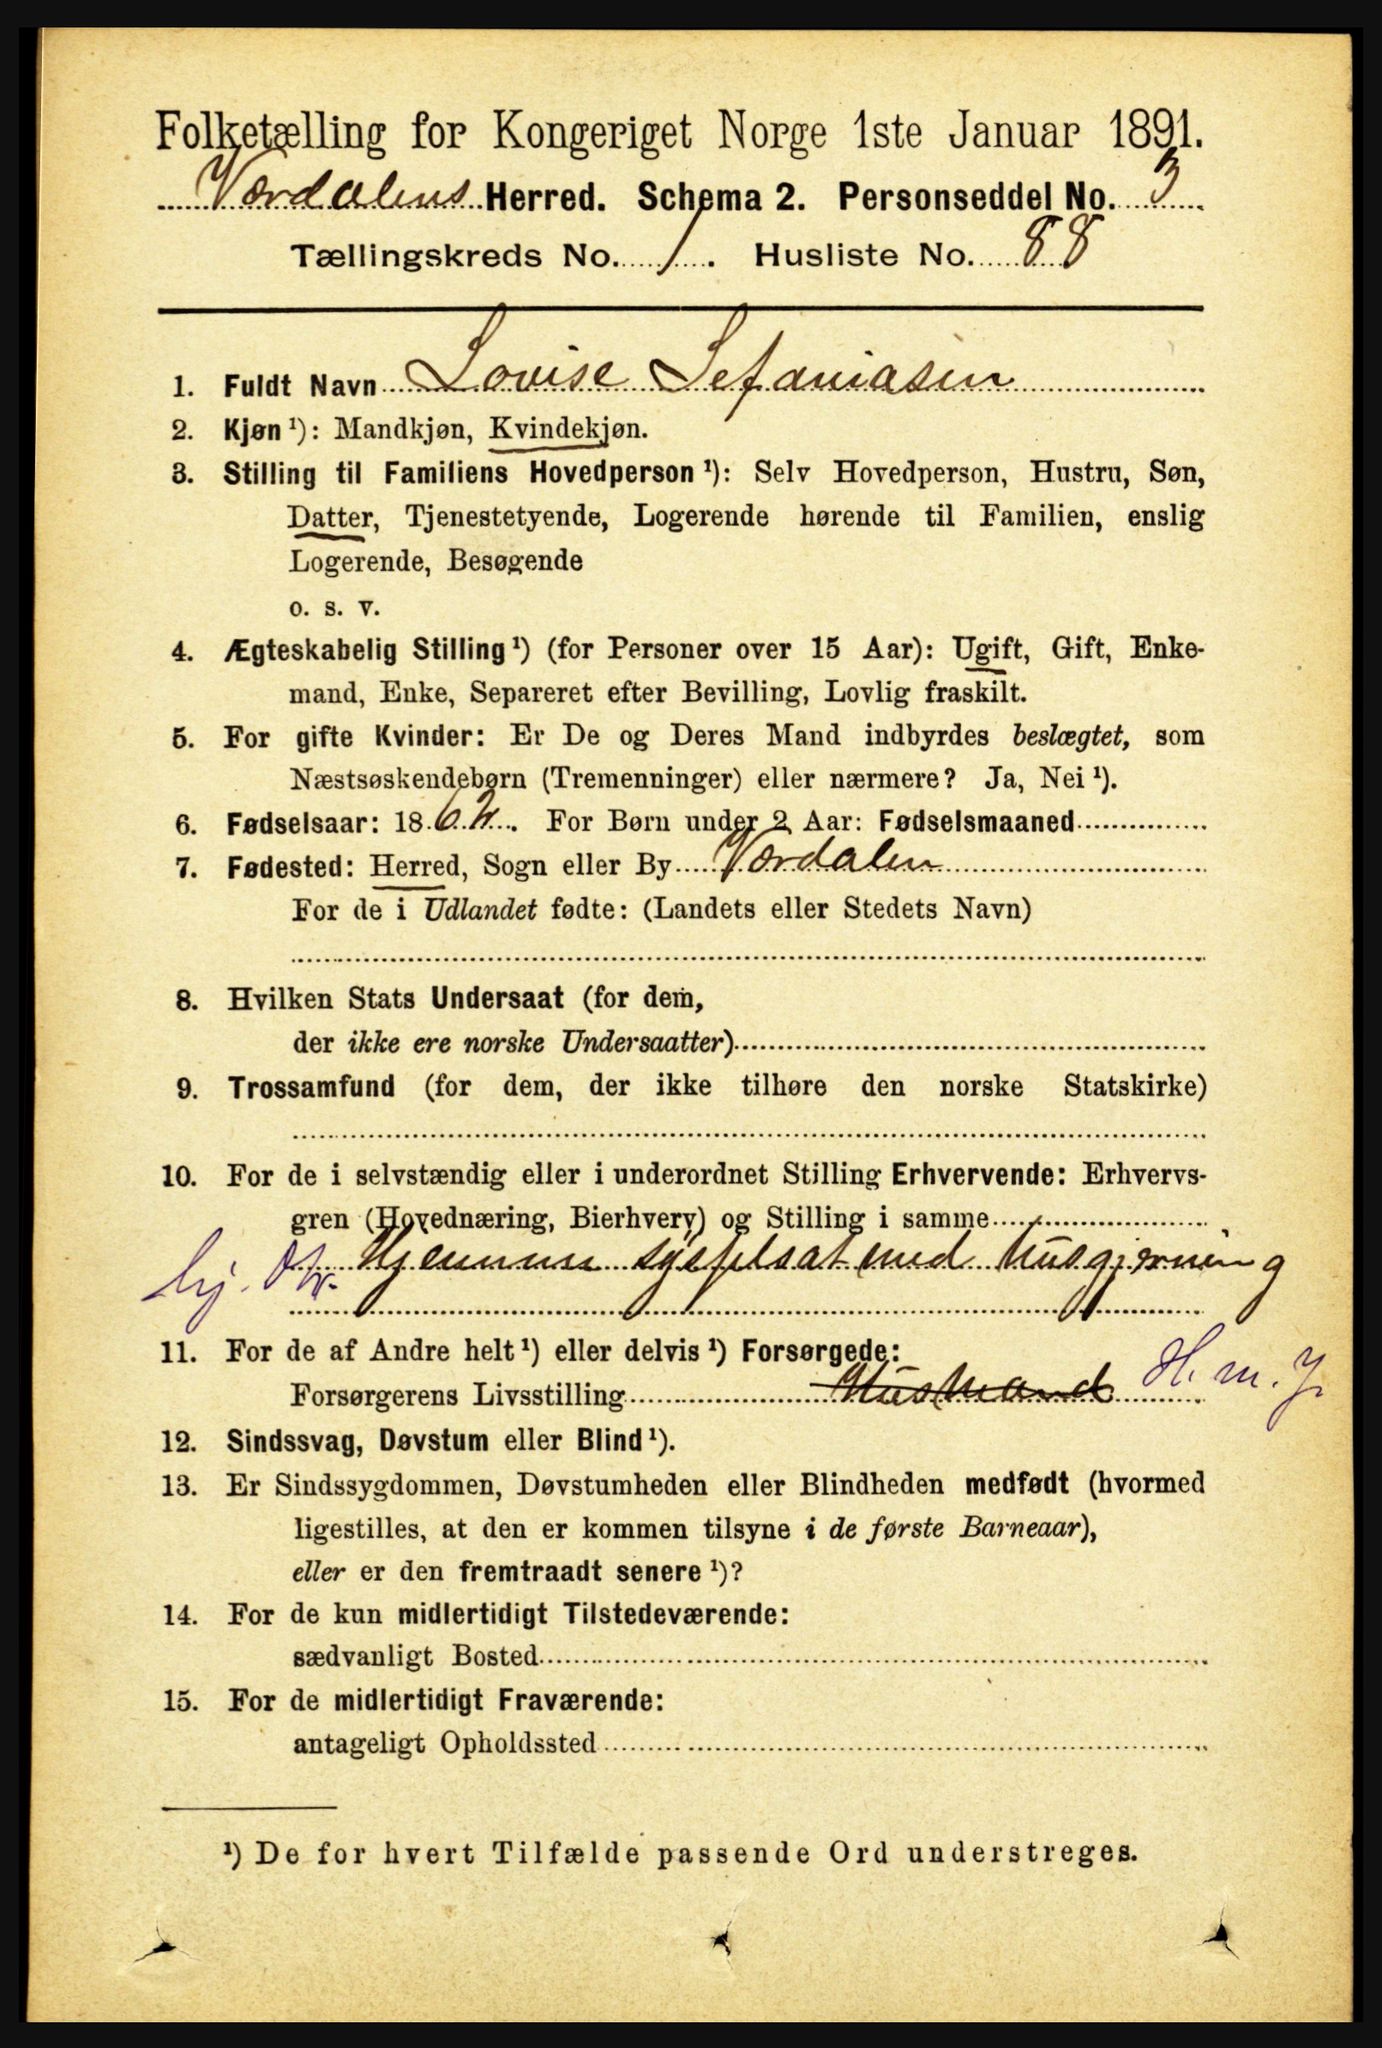 Folketælling for Kongeriget Norge 1ste Januar 1891.
Værdalens Herred. Schema 2. Personseddel No. 3
Tællingskreds No. 1. Husliste No. 88
1. Fuldt Navn Lovise Sefaniasen
2. Kjøn ¹): Mandkjøn, Kvindekjøn.
3. Stilling til Familiens Hovedperson ¹): Selv Hovedperson, Hustru, Søn,
Datter, Tjenestetyende, Logerende hørende til Familien, enslig
Logerende, Besøgende
o. s. v.
4. Ægteskabelig Stilling ¹) (for Personer over 15 Aar): Ugift, Gift, Enke-
mand, Enke, Separeret efter Bevilling, Lovlig fraskilt.
5. For gifte Kvinder: Er De og Deres Mand indbyrdes beslægtet, som
Næstsøskendebørn (Tremenninger) eller nærmere? Ja, Nei ¹).
6. Fødselsaar: 1862. For Børn under 2 Aar: Fødselsmaaned
7. Fødested: Herred, Sogn eller By Værdalen
For de i Udlandet fødte: (Landets eller Stedets Navn)
8. Hvilken Stats Undersaat (for dem,
der ikke ere norske Undersaatter)
9. Trossamfund (for dem, der ikke tilhøre den norske Statskirke)
10. For de i selvstændig eller i underordnet Stilling Erhvervende: Erhvervs-
gren (Hovednæring, Bierhverv) og Stilling i samme
Hjemme sysselsat med husgjerning
hj. Dtr.
11. For de af Andre helt ¹) eller delvis ¹) Forsørgede:
Forsørgerens Livsstilling Husmand H. m. J.
12. Sindssvag, Døvstum eller Blind ¹).
13. Er Sindssygdommen, Døvstumheden eller Blindheden medfødt (hvormed
ligestilles, at den er kommen tilsyne i de første Barneaar),
eller er den fremtraadt senere ¹)?
14. For de kun midlertidigt Tilstedeværende:
sædvanligt Bosted
15. For de midlertidigt Fraværende:
antageligt Opholdssted
¹) De for hvert Tilfælde passende Ord understreges.